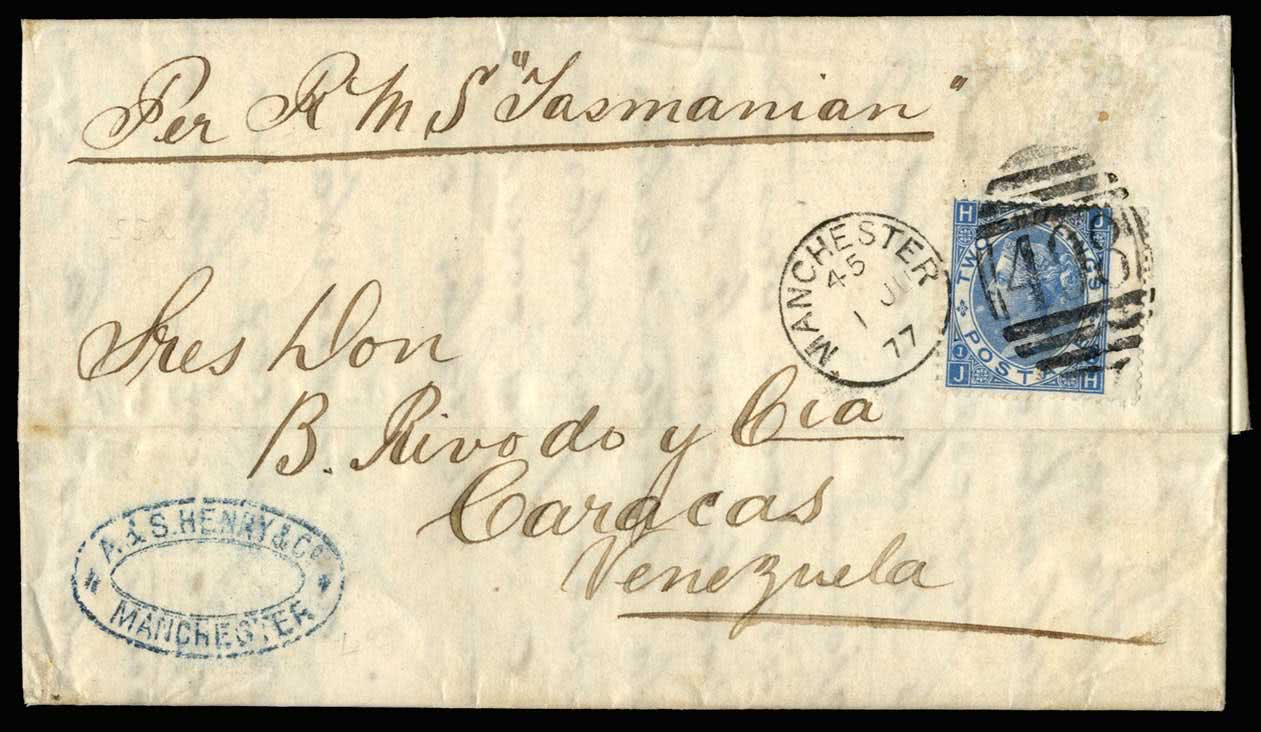 Per R M S "Tasmanian"
MANCHESTER
45
1 JU
77
H J
TWO SHILLINGS
498
POSTAGE
1
J H
Sres Don
B. Rivodo y Cia
Caracas
Venezuela
A. & S. HENRY & Co
MANCHESTER